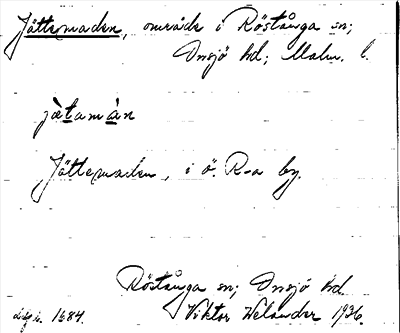 Jättemaden, område i Röstånga sn;
Onsjö hd; Malm. l.
jàtamàn
Jättemaden, i ö. R-a by.
Röstånga sn; Onsjö hd
1684. Viktor Welander 1936.